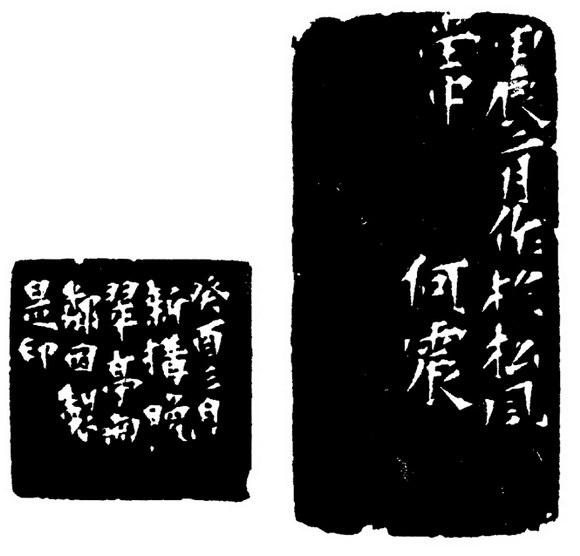 甲辰二月作於松風
堂中
何震
癸酉三月
新構晚
翠亭
鄰因製
是印